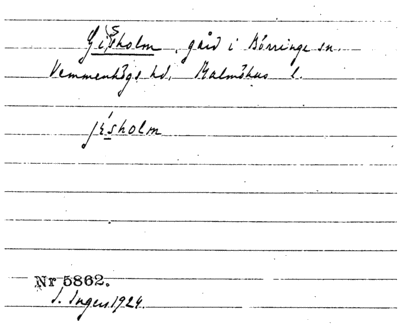 Gissholm, gård i Börringe sn.
Vemmenhögs hd, Malmöhus l.
jísholm
Nr 5862.
S. Ingers 1924.